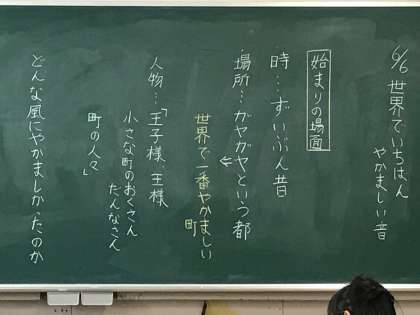 6/6 世界でいちばん
やかましい音
始まりの場面
時…ずいぶん昔
場所…ガヤガヤといつ都
←
世界で一番やかましい
町
人物…「王子様、王様
小さな町のおくさん
だんなさん
町の人々」
どんな風にやかましかったのか